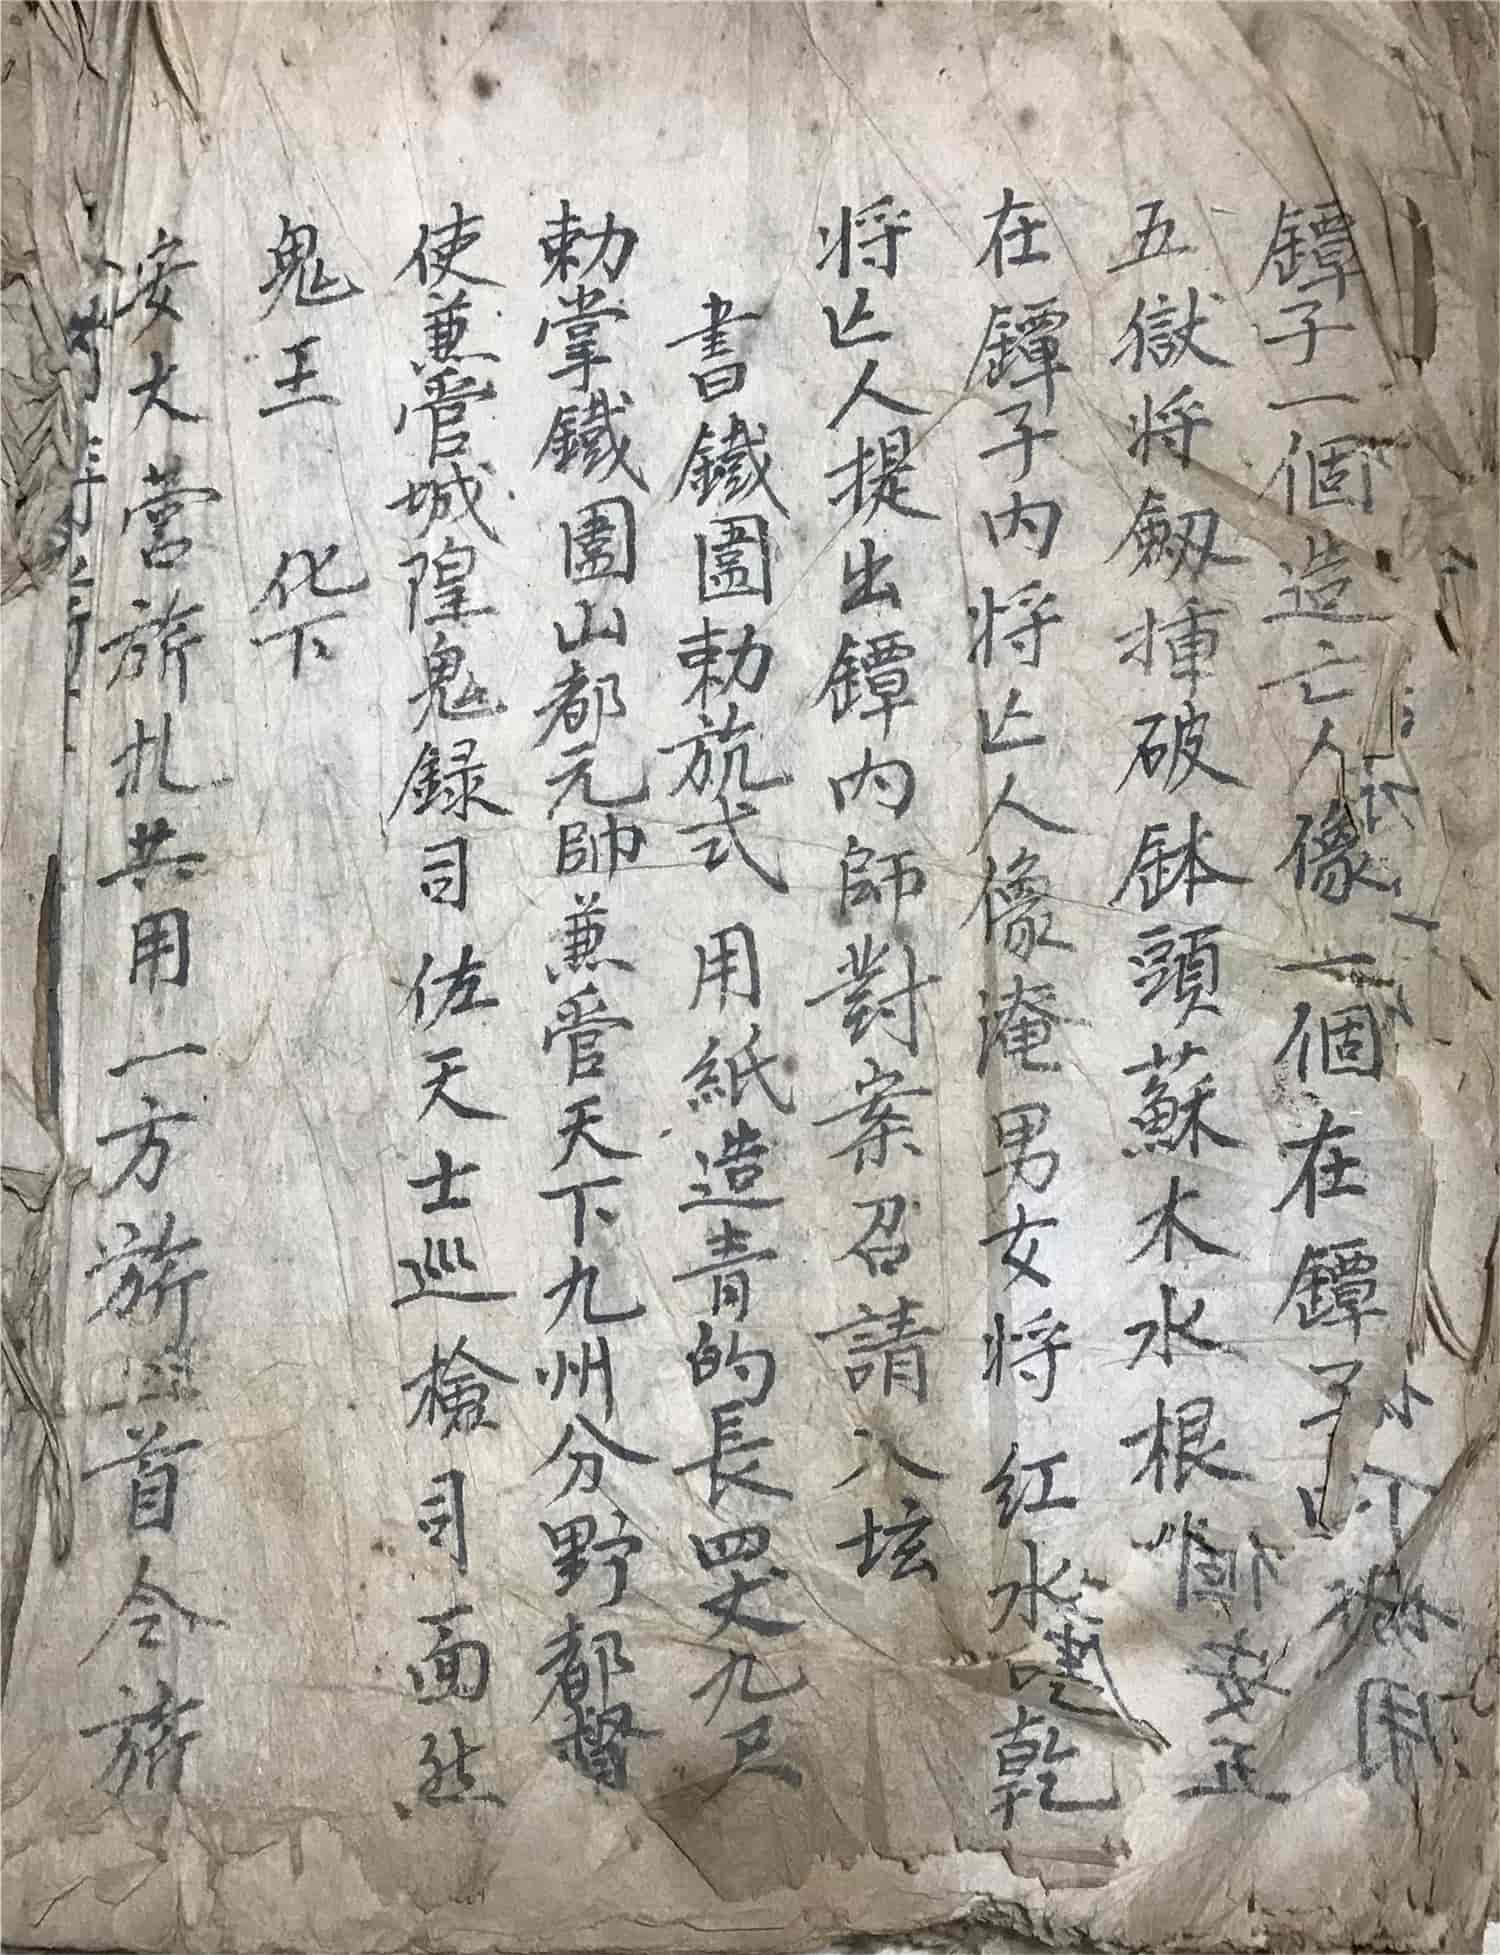 鐔子一個造亡人像一個在鐔子
五獄将劔揷破缽頭蘇木水根
在鐔子内将亾人像淹男女将红水乾
将亾人提出鐔内師對案召請入坛
書鐵圍勅旒式 用紙造青的長四丈九尺
勅掌鐵圍山都元帥兼管天下九州分野都督
使兼管城隍鬼録司佐天士巡檢司面然
鬼王 化下
安大营旂扎共用一方旂首令旂